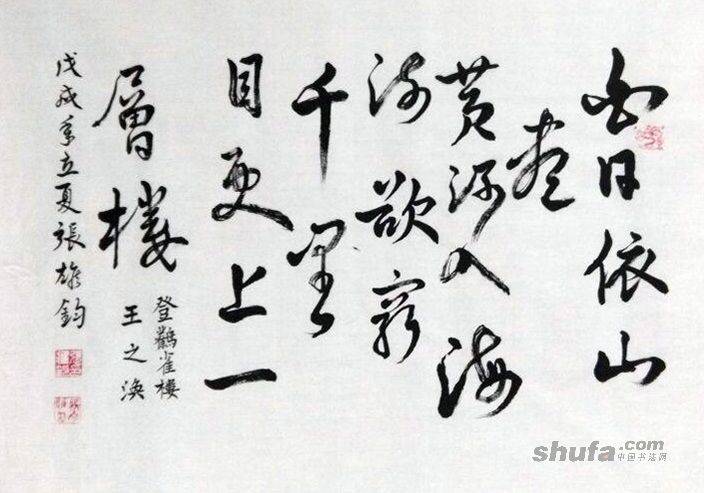 白日依山
盡
黄河入海
流欲窮
千里
目更上一
層樓
登鸛雀樓
王之渙
戊戌年立夏張雄鈞
shufa.com
中国书法网